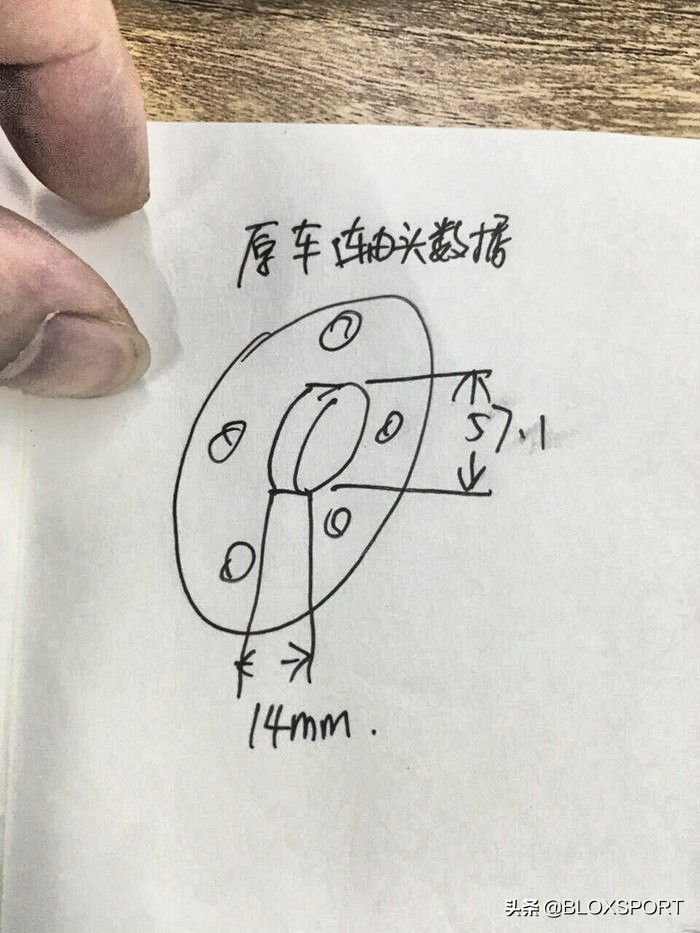 原车轴头数据
57.1
14mm.
头条 @BLOXSPORT